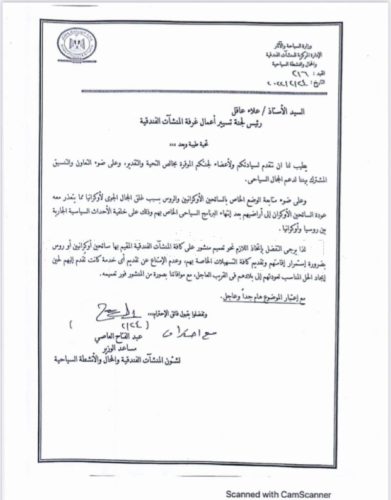 وزارة السياحة والآثار
الإدارة المركزية للمنشآت الفندقية
والمحال والأنشطة السياحية
القيد: ٢١٦
التاريخ: ٢٠٢٢/٢/٢٤
السيد الأستاذ / علاء عاقل
رئيس لجنة تسيير أعمال غرفة المنشآت الفندقية
تحية طيبة وبعد ...
يطيب لنا ان نتقدم لسيادتكم ولأعضاء لجنتكم الموقرة بخالص التحية والتقدير، وعلى ضوء التعاون والتنسيق
المشترك بيننا لدعم العمل السياحي.
وعلى ضوء متابعة الوضع الخاص بالسائحين الأوكرانيين والروس بسبب غلق المجال الجوى لأوكرانيا مما يتعذر معه
عودة السائحين الأوكران إلى أراضيهم بعد إنتهاء البرنامج السياحي الخاص بهم وذلك على خلفية الأحداث السياسية الجارية
بين روسيا وأوكرانيا.
لذا يرجى التفضل بإتخاذ اللازم نحو تعميم منشور على كافة المنشآت الفندقية المقيم بها سائحين أوكرانيين أو روس
بضرورة إستمرار إقامتهم وتقديم كافة التسهيلات الخاصة بهم وعدم الإمتناع عن تقديم أى خدمة كانت تقدم إليهم لحين
إيجاد الحل المناسب لعودتهم إلى بلادهم فى القريب العاجل، مع موافاتنا بصورة من المنشور فور تعميمه.
مع إعتبار الموضوع هام جداً وعاجل.
وتفضلوا بقبول فائق الإحترام،،،
مع احترامى
٢/٢٤
عبد الفتاح العاصي
مساعد الوزير
لشئون المنشآت الفندقية والمحال والأنشطة السياحية
Scanned with CamScanner